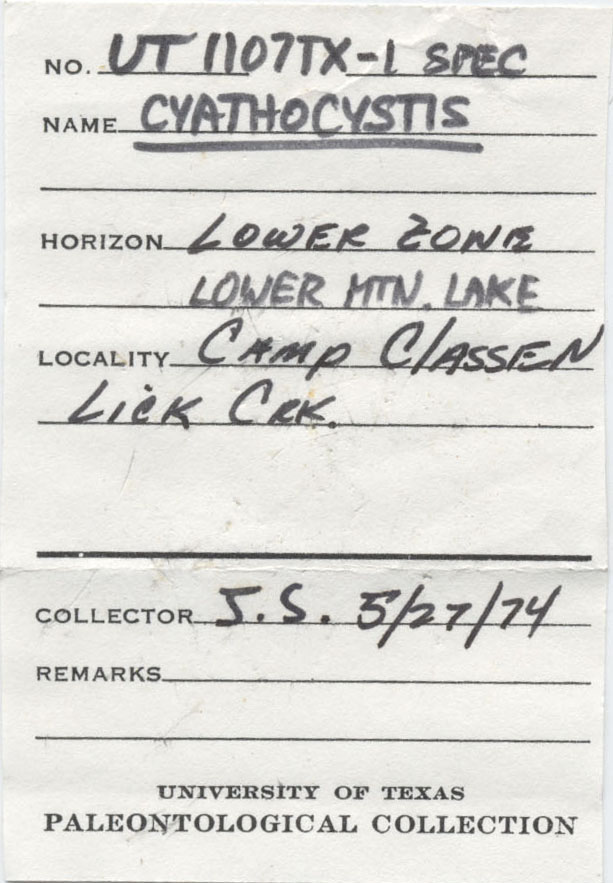 NO. UT 1107TX-1 SPEC
NAME CYATHOCYSTIS
HORIZON LOWER ZONE
LOWER MTN. LAKE
LOCALITY CAMP CLASSEN
LICK CRK.
COLLECTOR J.S. 5/27/74
REMARKS
UNIVERSITY OF TEXAS
PALEONTOLOGICAL COLLECTION